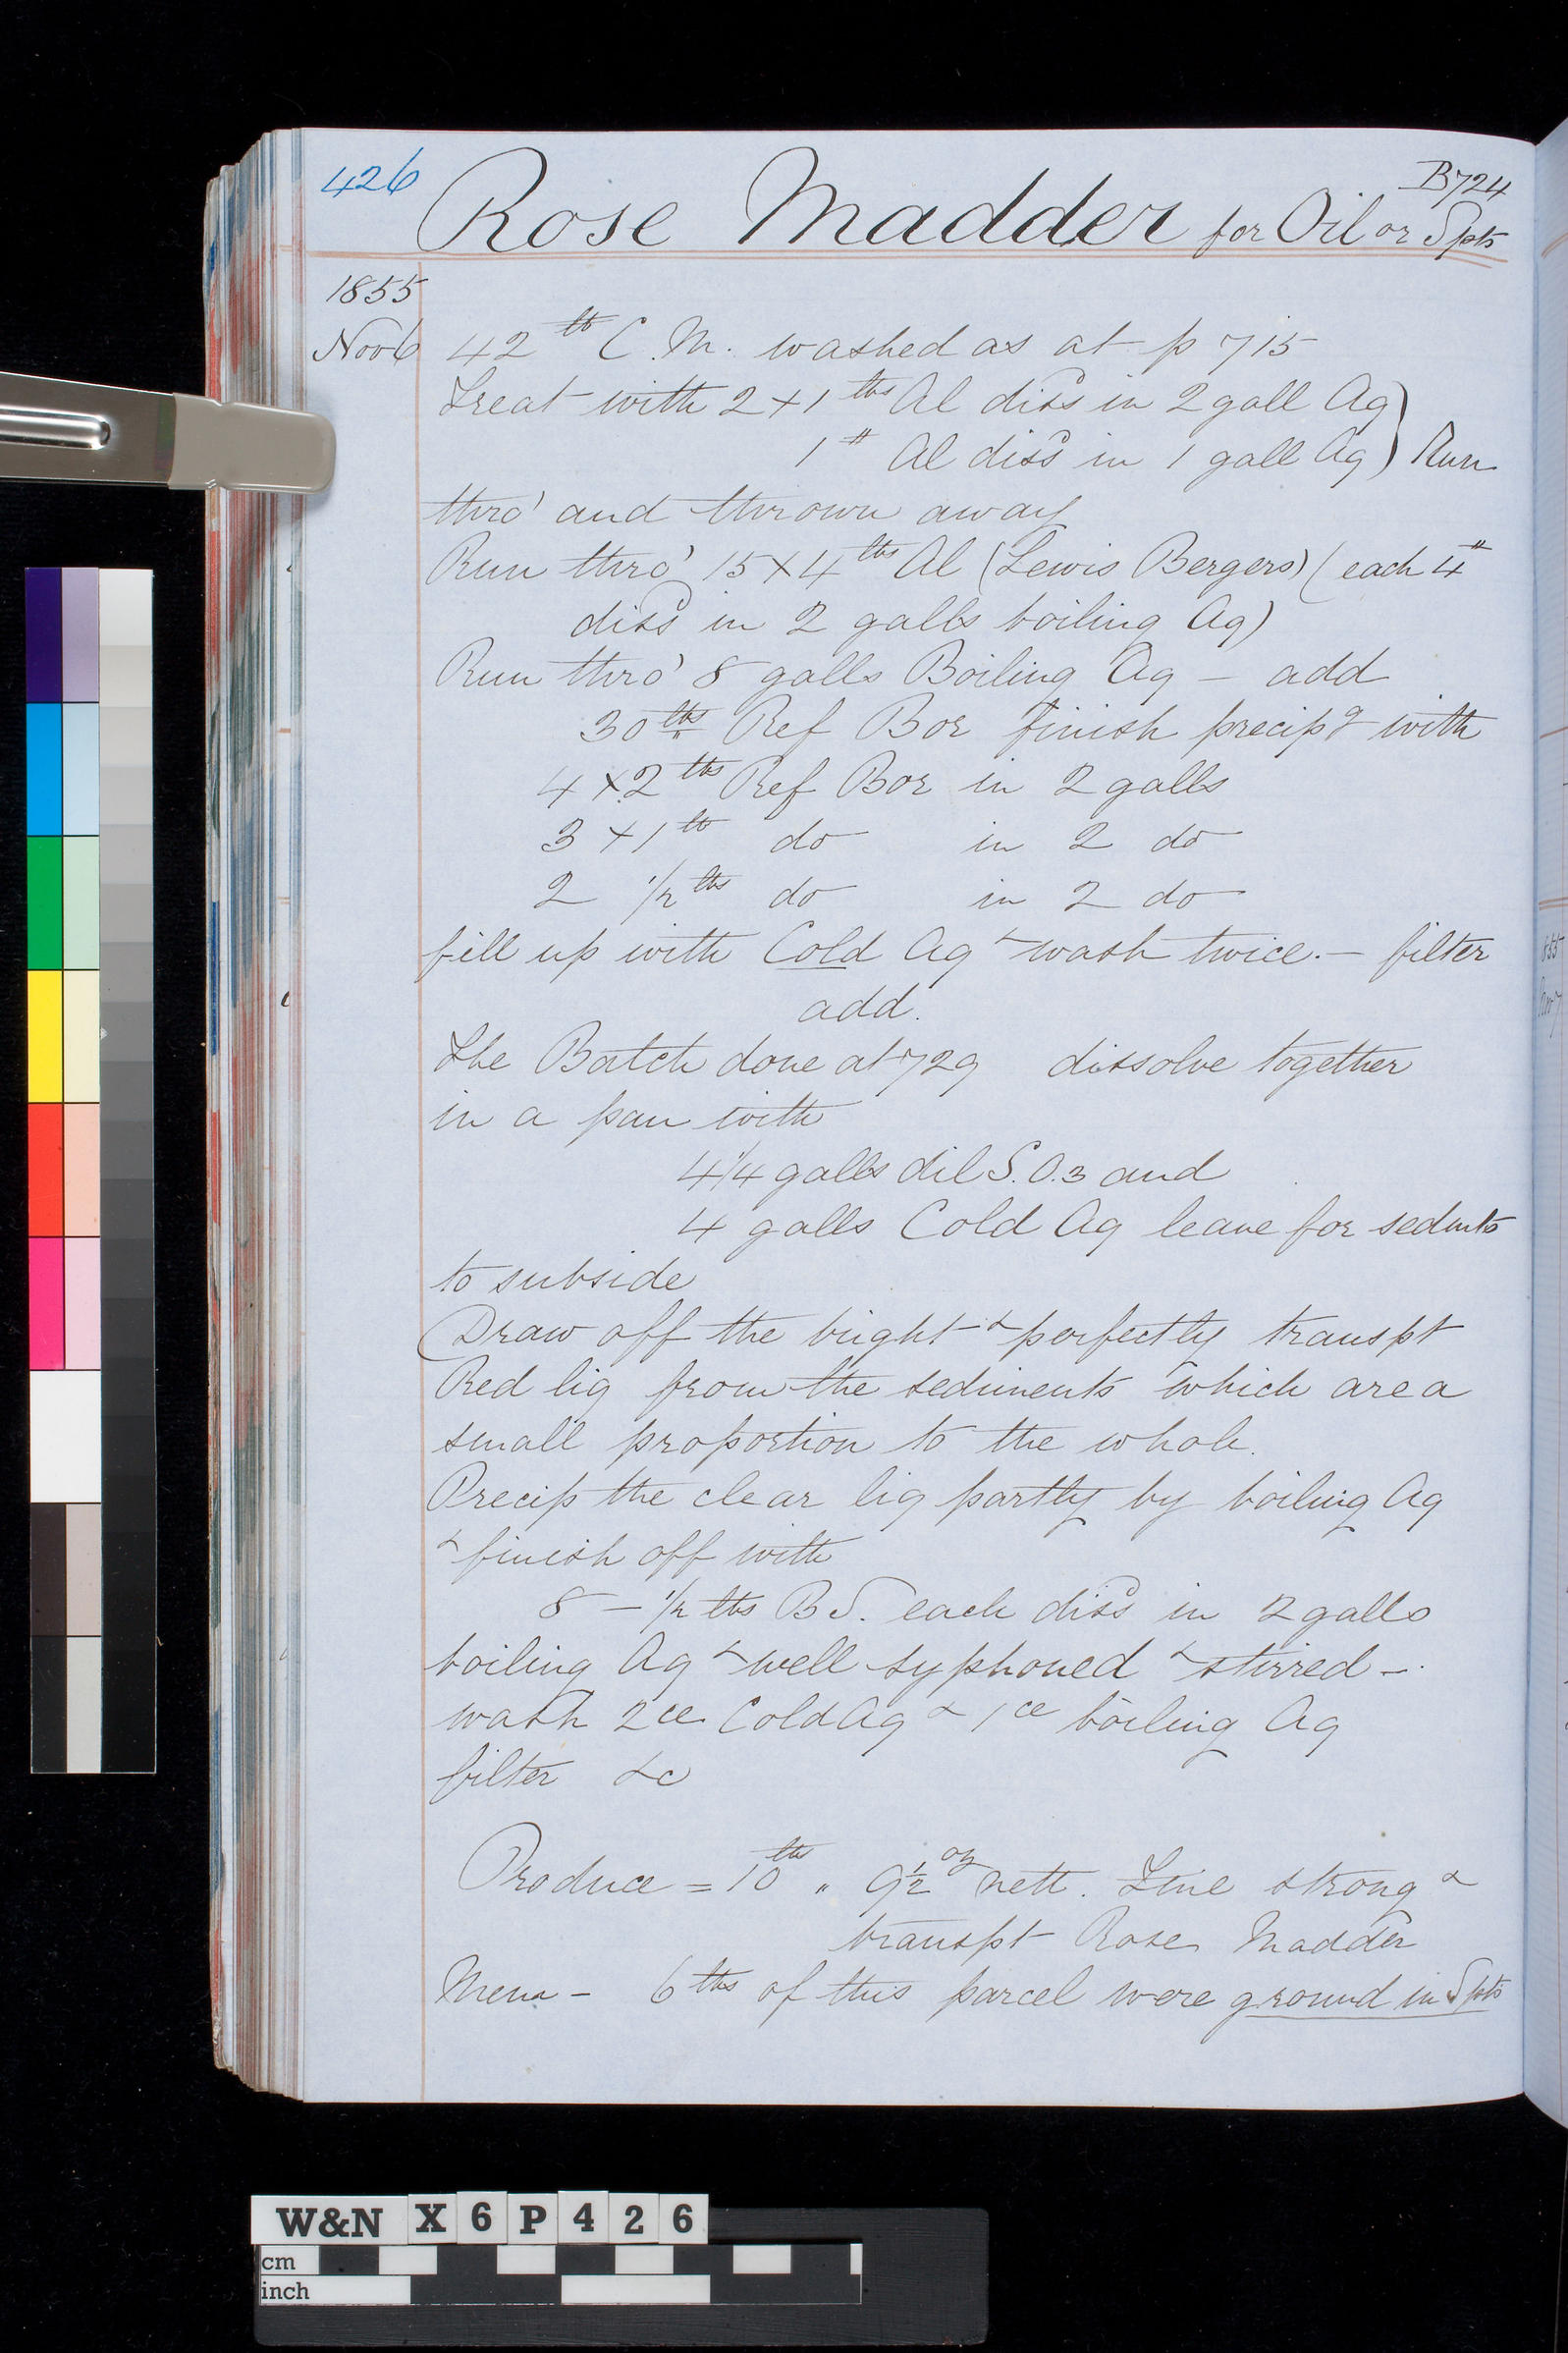 426
B724
Rose Madder for Oil or Spts
1855
Nov 6 42 lb C.M. washed as at p 715
Treat with 2 × 1 lbs Al dissd in 2 gall Aq)
1# Al dissd in 1 gall Aq) Run
thro' and thrown away
Run thro' 15 × 4 lbs Al (Lewis Bergers) (each 4#
dissd in 2 galls boiling Aq)
Run thro' 8 galls Boiling Aq — add
30 lbs Ref Bor finish precipg with
4 × 2 lbs Ref Bor in 2 galls
3 × 1 lb do in 2 do
2 1/2 lbs do in 2 do
fill up with Cold Aq & wash twice. — filter
add.
The Batch done at 729 dissolve together
in a pan with
4 1/4 galls dil S.O.3 and
4 galls Cold Aq leave for sedmts
to subside
Draw off the bright & perfectly transpt
Red liq from the sediments which are a
small proportion to the whole.
Precip the clear liq partly by boiling Aq
& finish off with
8 — 1/2 lbs B S. each dissd in 2 galls
boiling Aq & well syphoned & stirred —.
wash 2ce Cold Aq & 1ce boiling Aq
filter &c
Produce = 10 lbs " 9 1/2 oz nett. Fine strong &
transpt Rose Madder
Mem — 6 lbs of this parcel were ground in Spts
W&N X 6 P 4 2 6
cm
inch